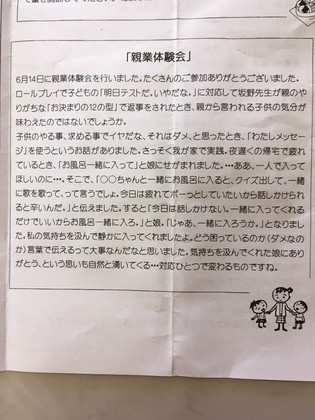 「親業体験会」
6月14日に親業体験会を行いました。たくさんのご参加ありがとうございました。
ロールプレイで子どもの「明日テストだ。いやだな。」に対応して坂野先生が親のや
りがちな「お決まりの12の型」で返事をされたとき、親から言われる子供の気分が
味わえたのではないでしょうか。
子供のやる事、求める事でイヤだな、それはダメ、と思ったとき、「わたしメッセー
ジ」を使うというお話がありました。さっそく我が家で実践。夜遅くの帰宅で疲れ
ているとき、「お風呂一緒に入って」と娘にせがまれました。…ああ、一人で入って
ほしいのに…。そこで、「〇〇ちゃんと一緒にお風呂に入ると、クイズ出して、一緒
に歌を歌って、って言うでしょ。今日は疲れてボーっとしていたいから話しかけられ
ると辛いんだ。」と伝えました。すると「今日は話しかけない。一緒に入ってくれる
だけでいいからお風呂一緒に入ろ。」と娘。「じゃあ、一緒に入ろうか。」となりまし
た。私の気持ちを汲んで静かに入ってくれましたよ。どう困っているのか（ダメなの
か）言葉で伝えるって大事なんだなと思いました。気持ちを汲んでくれた娘にあり
がとう、という思いも自然と湧いてくる…対応ひとつで変わるものですね。